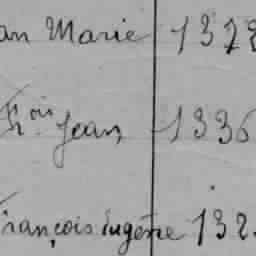 an Marie 1328
Fr. ois Jean, 1336
François Eugène 132